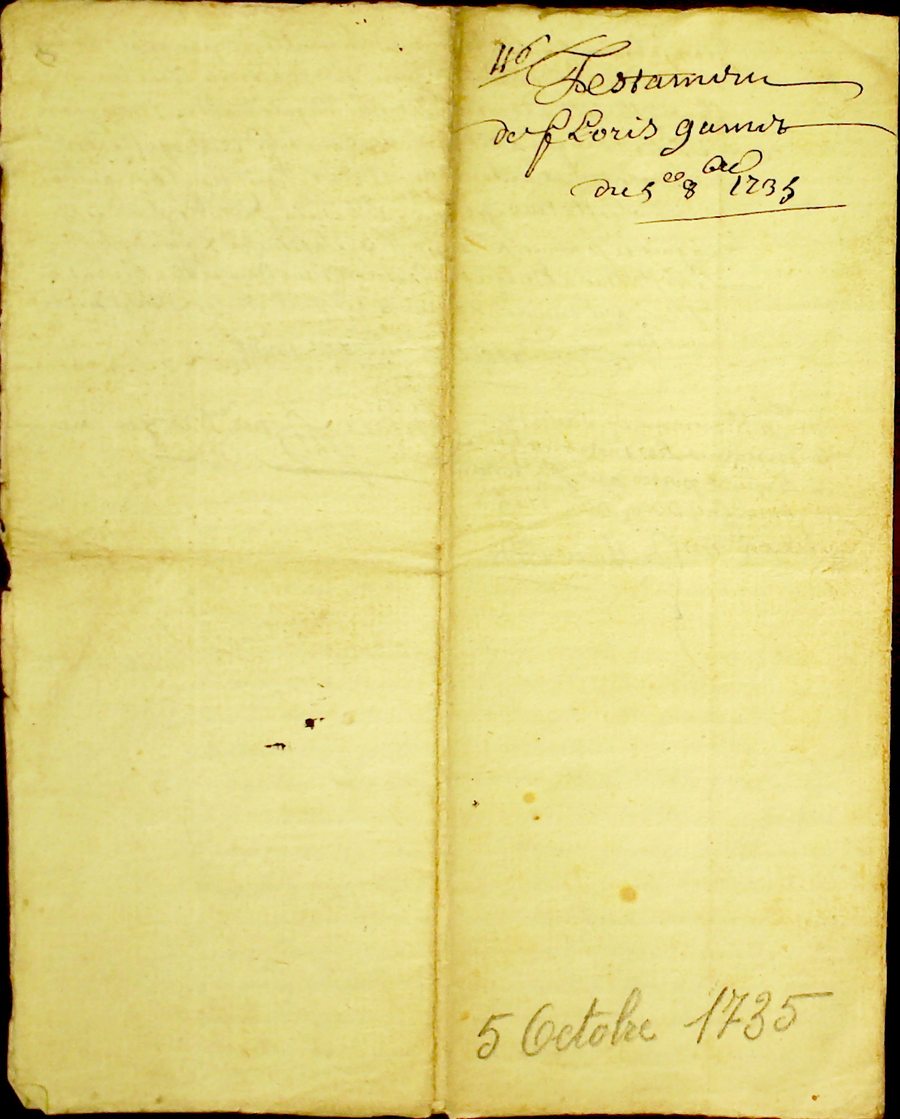 46
Testament
de floris gamet
du 5ee 8bre 1735
5 Octobre 1735